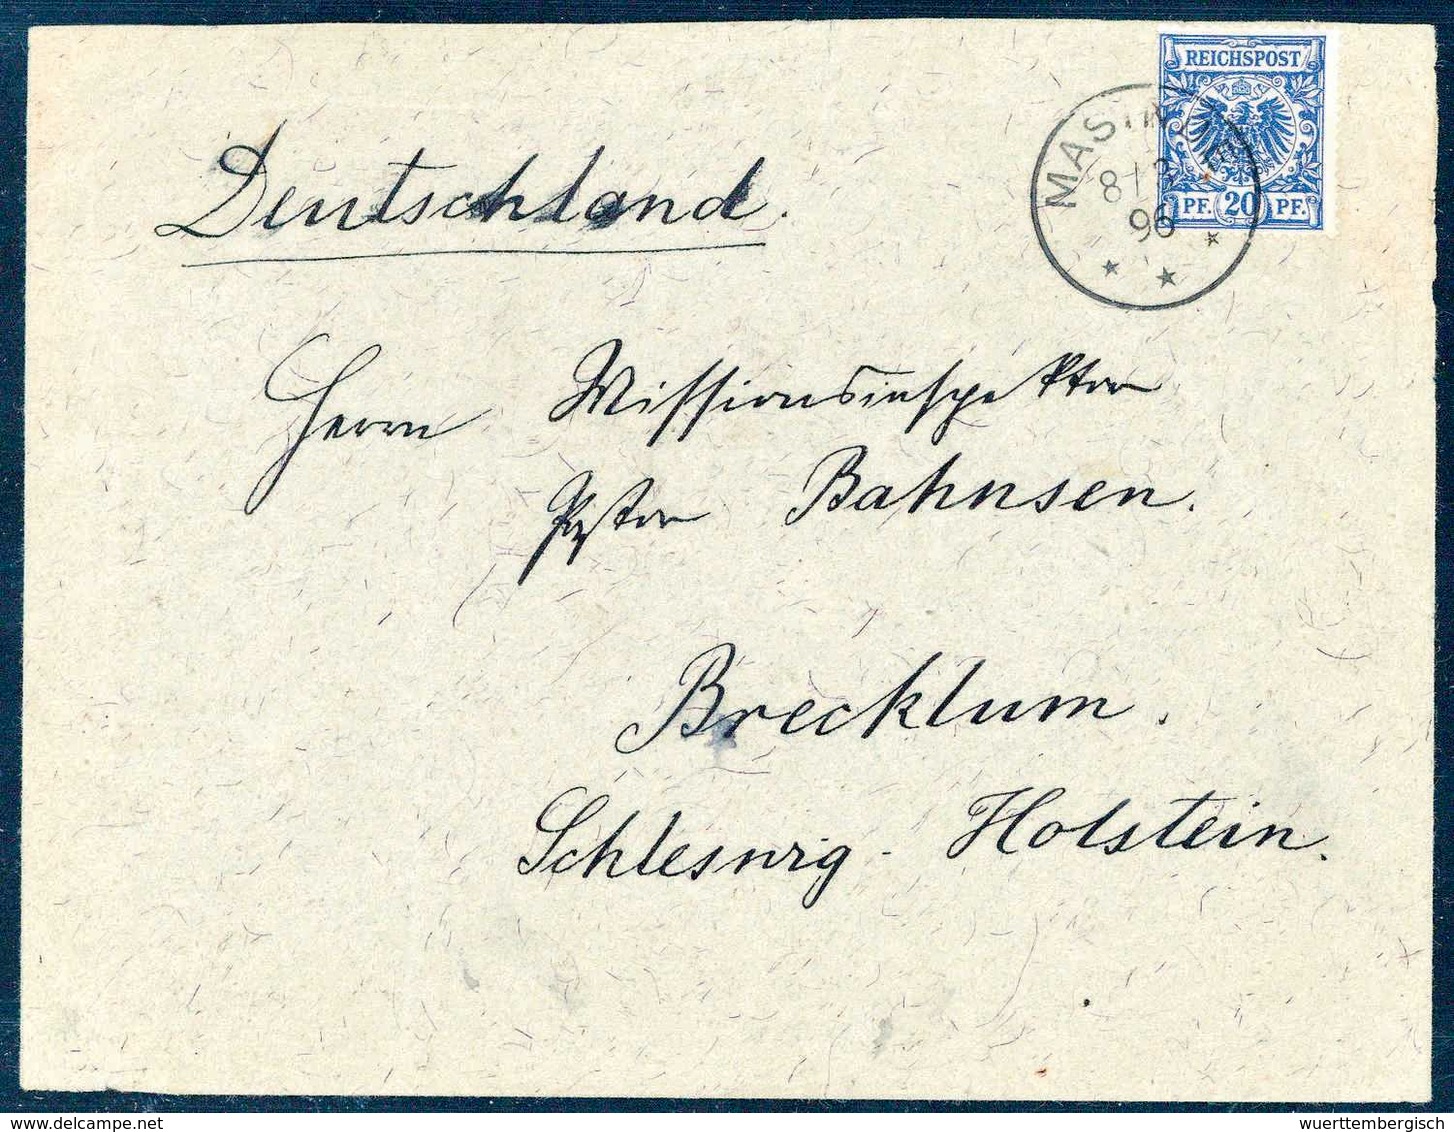 REICHSPOST
PF. 20 PF.
MASINDE
8/3
96
Deutschland.
Herrn Missionsinspektor
Pastor Bahnsen.
Brecklum.
Schleswig-Holstein.
wuerttembergisch